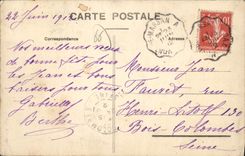 22 Juin 191
CARTE POSTALE
Correspondance
Adresse
Vos meilleurs vœux
de bonne fête pour
les Jean et tous
baisers pour tous
Gabrielle
Berthe
Monsieur Jean
Fauret rue
Henri-Litolf 30
Bois-Colombes
Seine